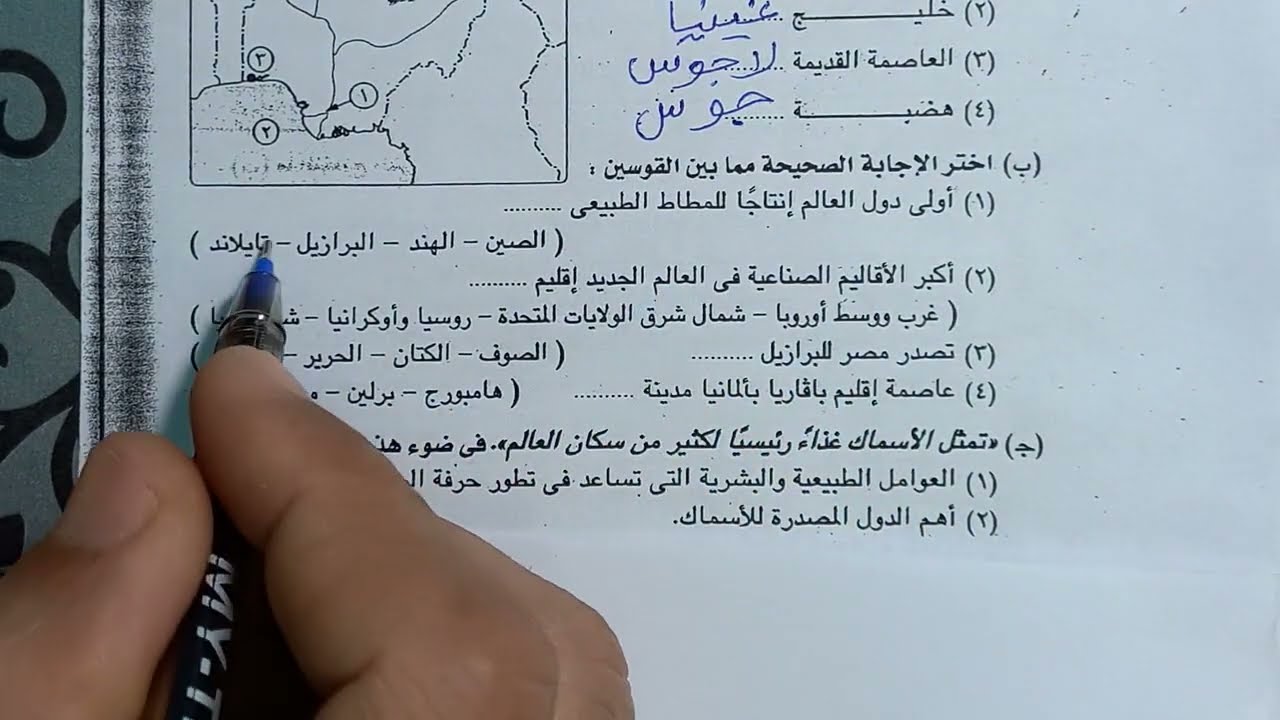 (٢) خليـــــــج ...... غينيا
(٣) العاصمة القديمة ...... لاجوس
(٤) هضبـــــــــة ...... جوس
٣
١
٢
(ب) اختر الإجابة الصحيحة مما بين القوسين :
(١) أولى دول العالم إنتاجًا للمطاط الطبيعى ..........
( الصين – الهند – البرازيل – تايلاند )
(٢) أكبر الأقاليم الصناعية فى العالم الجديد إقليم ..........
( غرب ووسط أوروبا – شمال شرق الولايات المتحدة – روسيا وأوكرانيا –
(٣) تصدر مصر للبرازيل .......... ( الصوف – الكتان – الحرير –
(٤) عاصمة إقليم باڤاريا بألمانيا مدينة .......... ( هامبورج – برلين –
(جـ) «تمثل الأسماك غذاءً رئيسيًا لكثير من سكان العالم». فى ضوء
(١) العوامل الطبيعية والبشرية التى تساعد فى تطور حرفة
(٢) أهم الدول المصدرة للأسماك.
MY-T